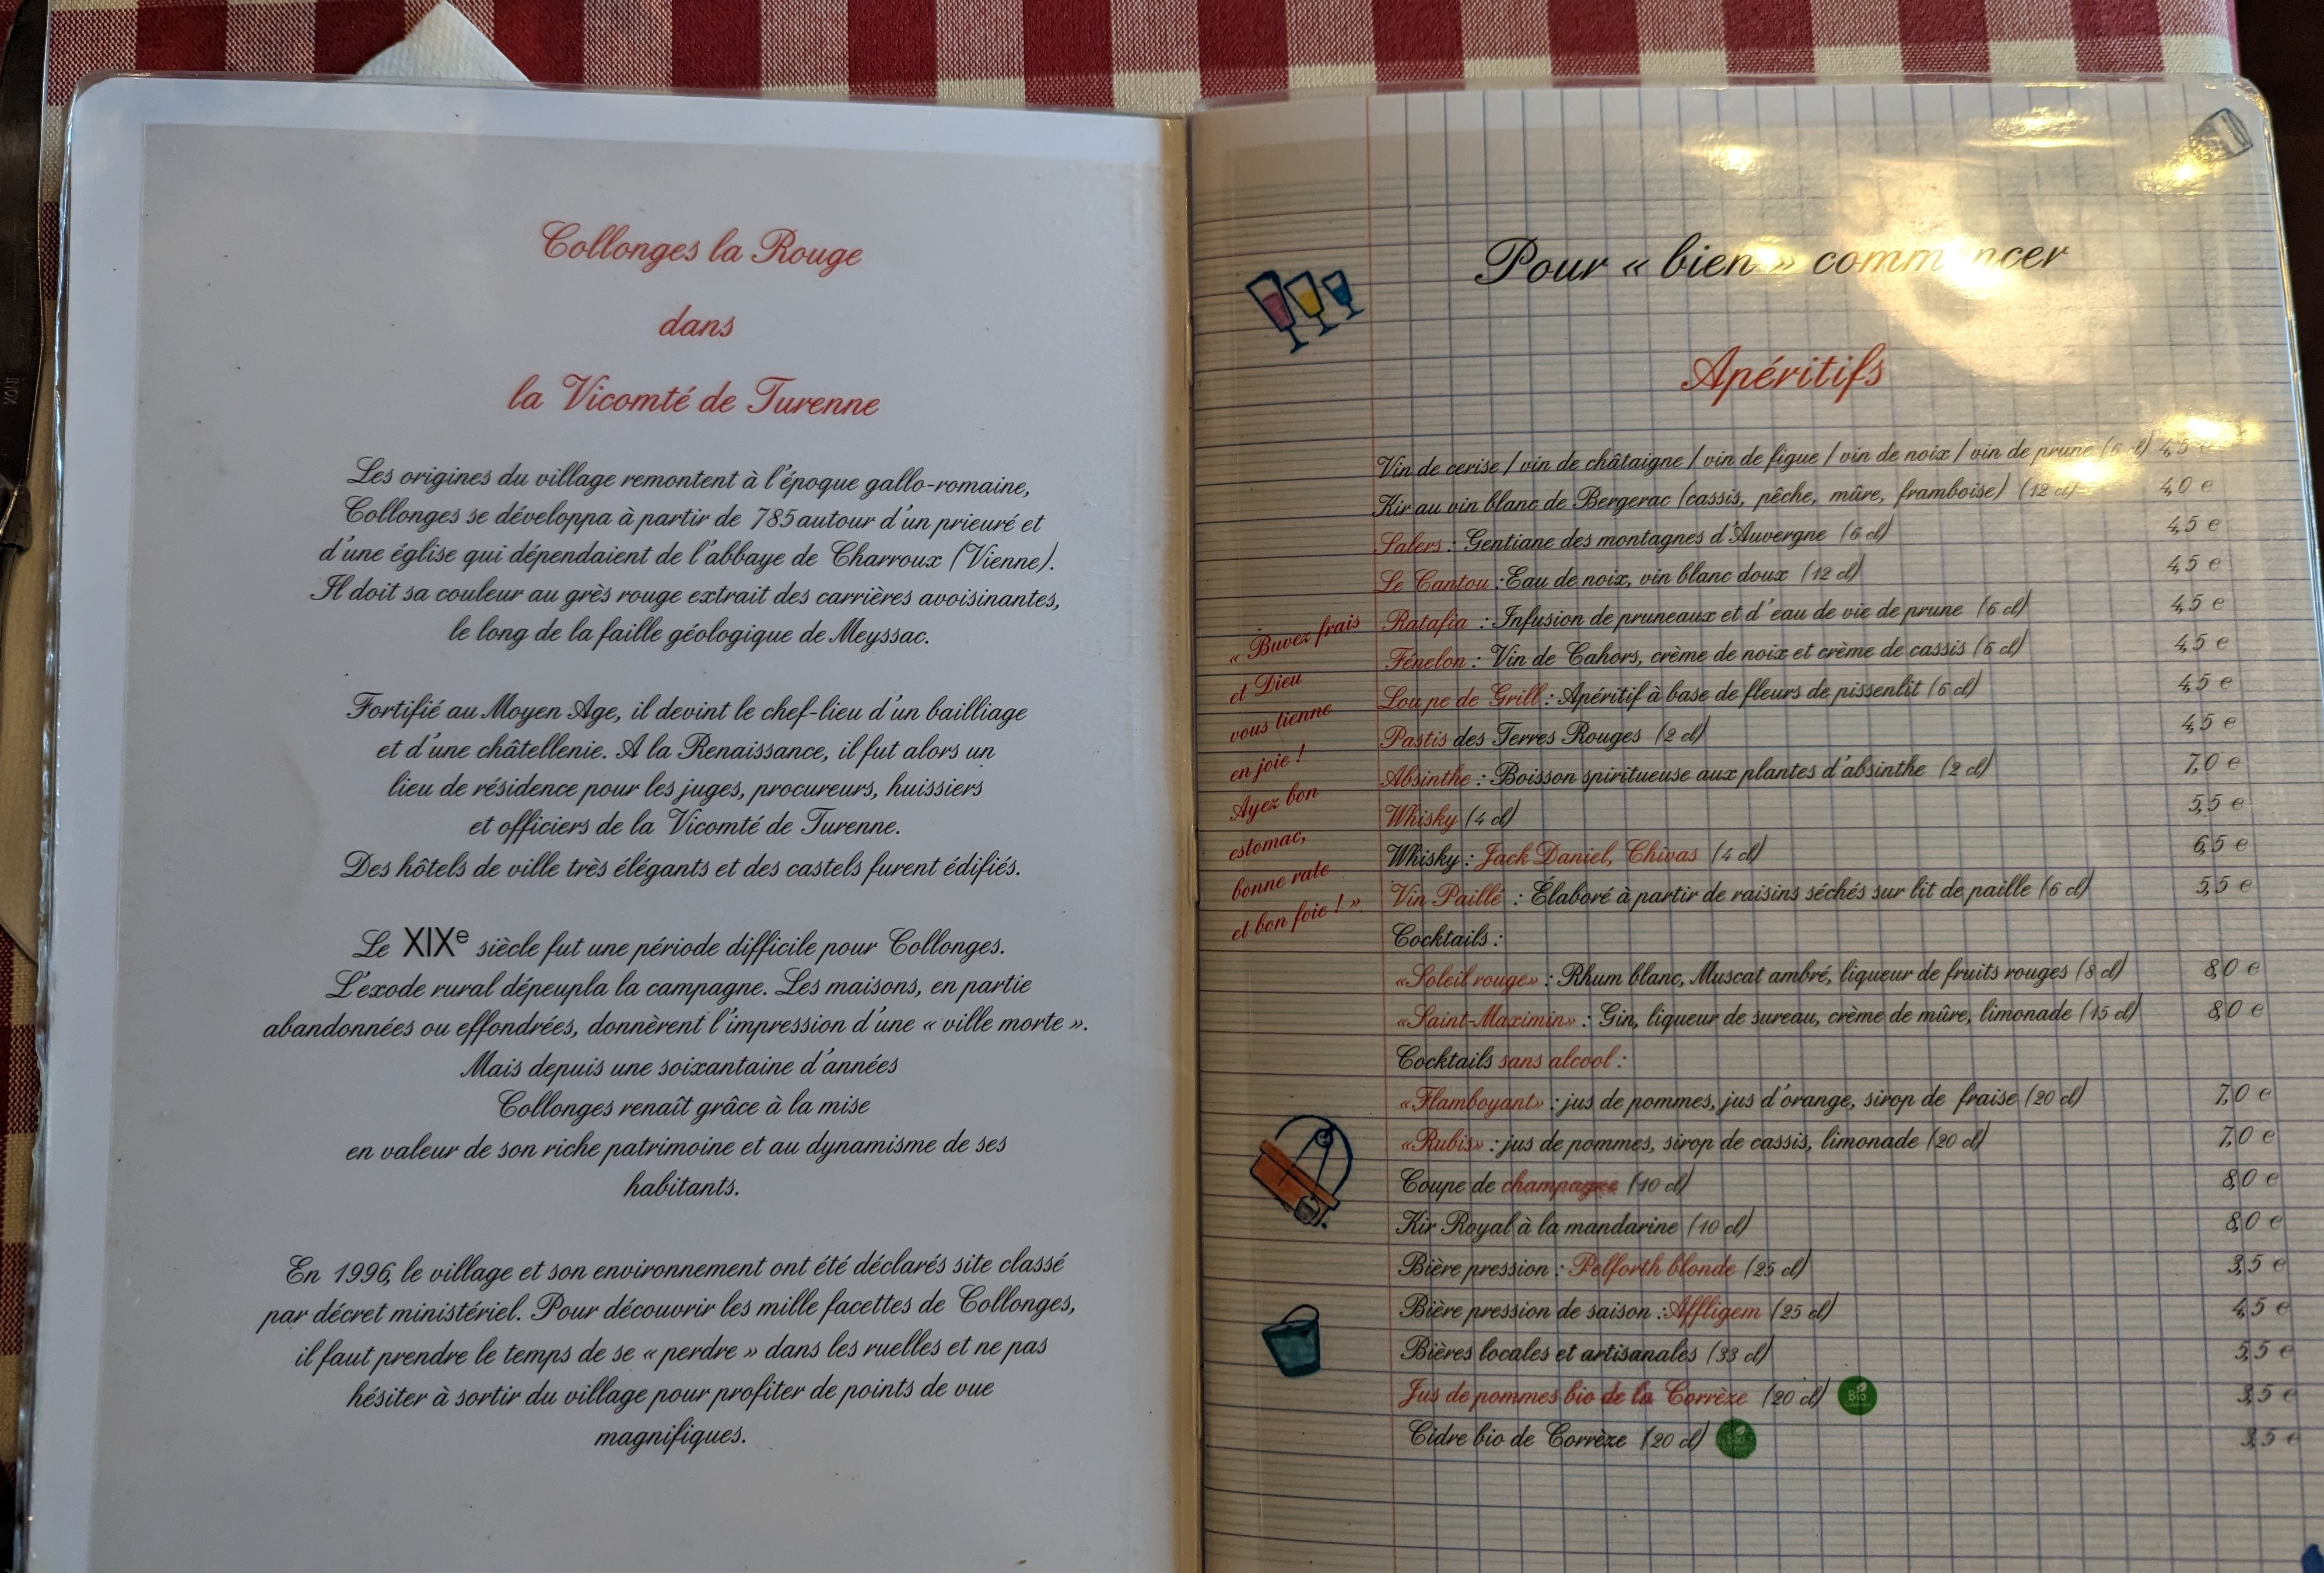 Collonges la Rouge
dans
la Vicomté de Turenne
Les origines du village remontent à l'époque gallo-romaine,
Collonges se développa à partir de 785 autour d'un prieuré et
d'une église qui dépendaient de l'abbaye de Charroux (Vienne).
Il doit sa couleur au grès rouge extrait des carrières avoisinantes,
le long de la faille géologique de Meyssac.
Fortifié au Moyen Age, il devint le chef-lieu d'un bailliage
et d'une châtellenie. A la Renaissance, il fut alors un
lieu de résidence pour les juges, procureurs, huissiers
et officiers de la Vicomté de Turenne.
Des hôtels de ville très élégants et des castels furent édifiés.
Le XIXe siècle fut une période difficile pour Collonges.
L'exode rural dépeupla la campagne. Les maisons, en partie
abandonnées ou effondrées, donnèrent l'impression d'une « ville morte ».
Mais depuis une soixantaine d'années
Collonges renaît grâce à la mise
en valeur de son riche patrimoine et au dynamisme de ses
habitants.
En 1996, le village et son environnement ont été déclarés site classé
par décret ministériel. Pour découvrir les mille facettes de Collonges,
il faut prendre le temps de se « perdre » dans les ruelles et ne pas
hésiter à sortir du village pour profiter de points de vue
magnifiques.
Pour « bien » commencer
Apéritifs
« Buvez frais
et Dieu
vous tienne
en joie !
Ayez bon
estomac,
bonne rate
et bon foie ! »
Vin de cerise / vin de châtaigne / vin de figue / vin de noix / vin de prune (6 cl) 4,5 e
Kir au vin blanc de Bergerac (cassis, pêche, mûre, framboise) (12 cl) 4,0 e
Salers : Gentiane des montagnes d'Auvergne (6 cl) 4,5 e
Le Cantou : Eau de noix, vin blanc doux (12 cl) 4,5 e
Ratafia : Infusion de pruneaux et d'eau de vie de prune (6 cl) 4,5 e
Fénelon : Vin de Cahors, crème de noix et crème de cassis (6 cl) 4,5 e
Lou pe de Grill : Apéritif à base de fleurs de pissenlit (6 cl) 4,5 e
Pastis des Terres Rouges (2 cl) 4,5 e
Absinthe : Boisson spiritueuse aux plantes d'absinthe (2 cl) 7,0 e
Whisky (4 cl) 5,5 e
Whisky : Jack Daniel, Chivas (4 cl) 6,5 e
Vin Paillé : Élaboré à partir de raisins séchés sur lit de paille (6 cl) 5,5 e
Cocktails :
«Soleil rouge» : Rhum blanc, Muscat ambré, liqueur de fruits rouges (8 cl) 8,0 e
«Saint-Maximin» : Gin, liqueur de sureau, crème de mûre, limonade (15 cl) 8,0 e
Cocktails sans alcool :
«Flamboyant» : jus de pommes, jus d'orange, sirop de fraise (20 cl) 7,0 e
«Rubis» : jus de pommes, sirop de cassis, limonade (20 cl) 7,0 e
Coupe de champagne (10 cl) 8,0 e
Kir Royal à la mandarine (10 cl) 8,0 e
Bière pression : Pelforth blonde (25 cl) 3,5 e
Bière pression de saison : Affligem (25 cl) 4,5 e
Bières locales et artisanales (33 cl) 5,5 e
Jus de pommes bio de la Corrèze (20 cl) Bio 3,5 e
Cidre bio de Corrèze (20 cl) 3,5 e